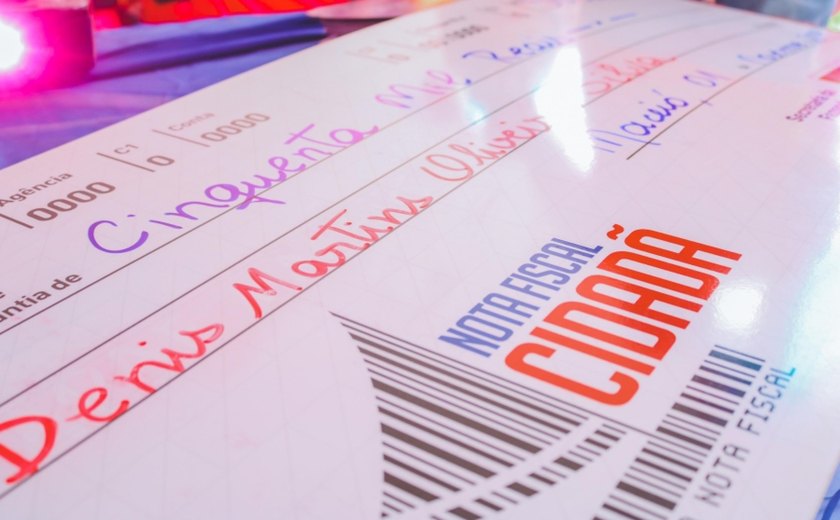 Agência C1 Conta
0000 0 0000
Cinquenta Mil Reais
antia de
Denis Martins Oliveira Silva
Maceió 01
NOTA FISCAL
CIDADÃ
NOTA FISCAL